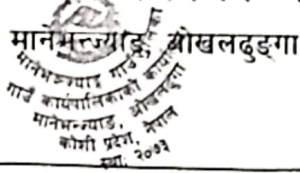 मानेभञ्ज्याङ, ओखलढुङ्गा
मानेभञ्ज्याङ गाउँ
गाउँ कार्यपालिकाको कार्यालय
मानेभञ्ज्याङ, ओखलढुंगा
कोशी प्रदेश, नेपाल
स्था. २०७३